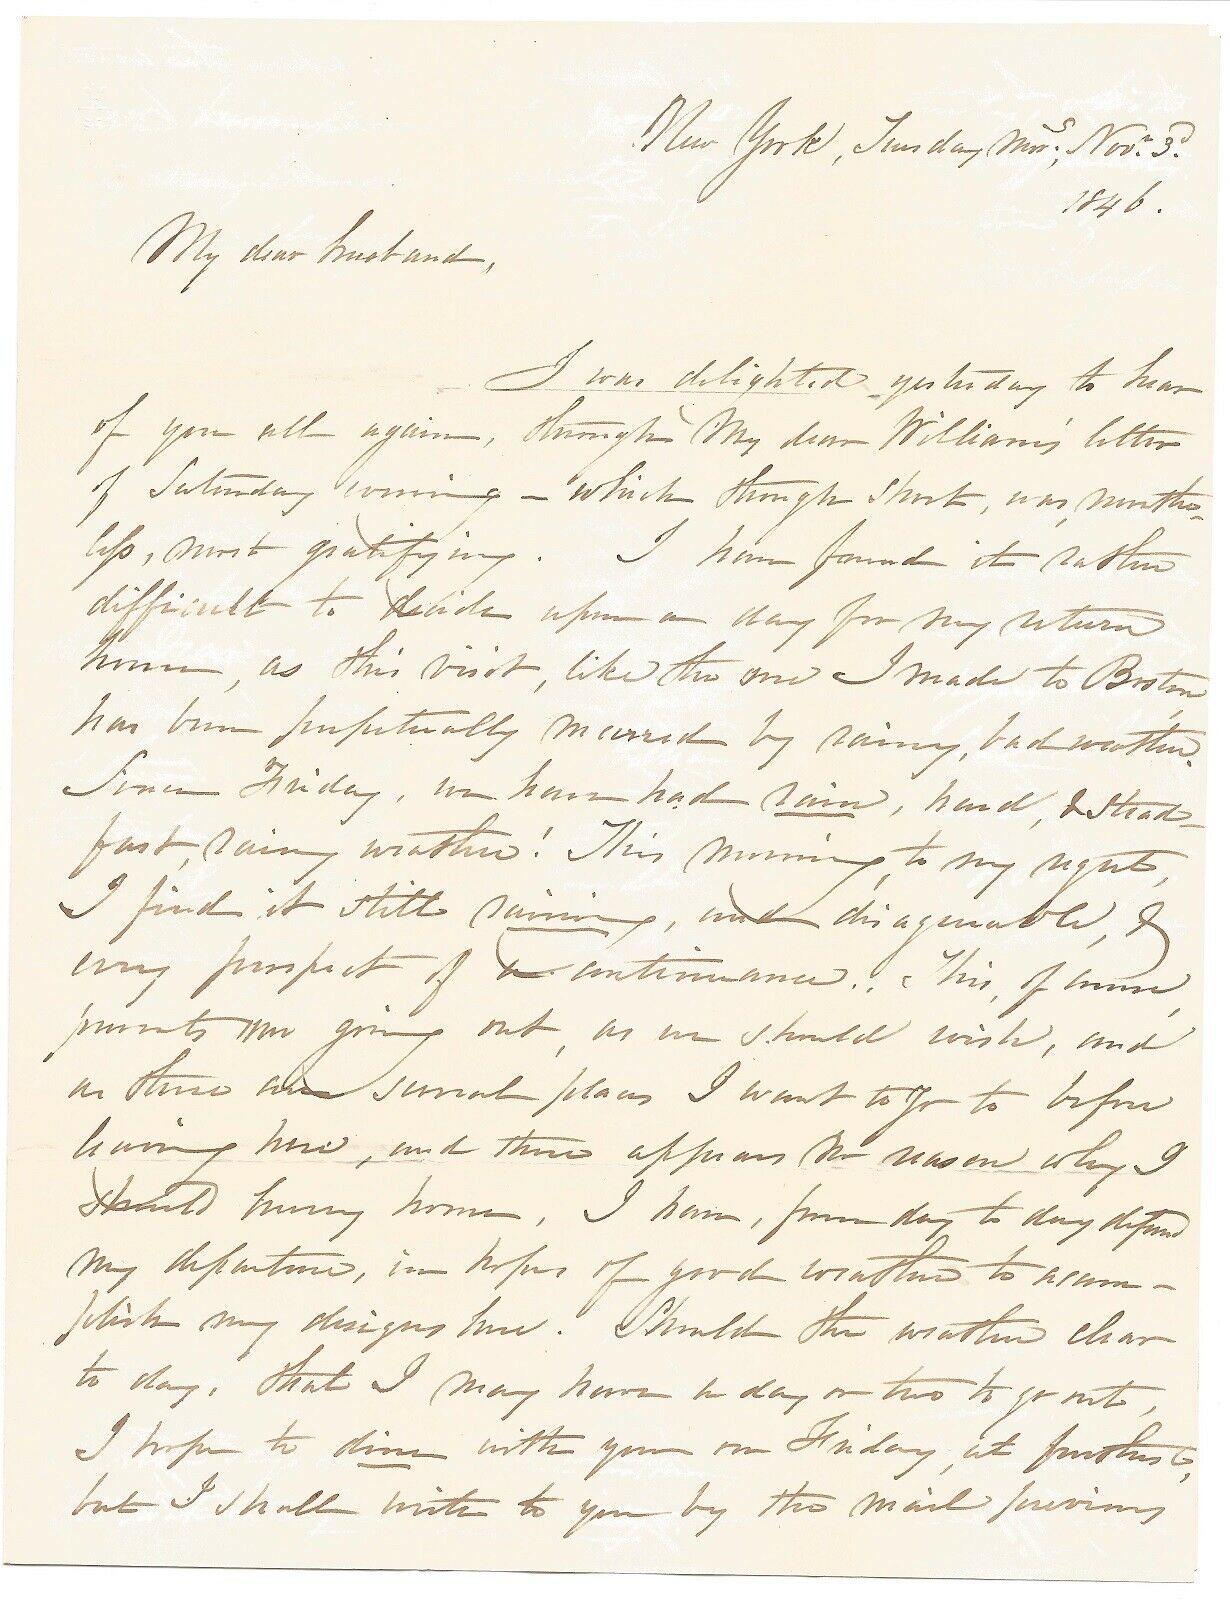 New York, Tuesday Morg, Nov. 3d.
1846.
My dear husband,
I was delighted yesterday to hear
of you all again, through my dear William's letter
of Saturday evening – which though short, was, neverthe-
less, most gratifying. I have found it rather
difficult to decide upon a day for my return
home, as this visit, like the one I made to Boston,
has been perpetually marred by rainy, bad weather.
Since Friday, we have had rain, hard, & stead-
fast, rainy weather! This morning, to my regret,
I find it still raining, and disagreeable, &
every prospect of a continuance. This, of course,
prevents our going out, as we should wish, and
as there are several places I want to go to before
leaving here, and there appears no reason why I
should hurry home, I have, from day to day defered
my departure, in hopes of good weather to accom-
plish my designs here. Should the weather clear
to day, that I may have a day or two to go out,
I hope to dine with you on Friday, at furthest,
but I shall write to you by the mail previous